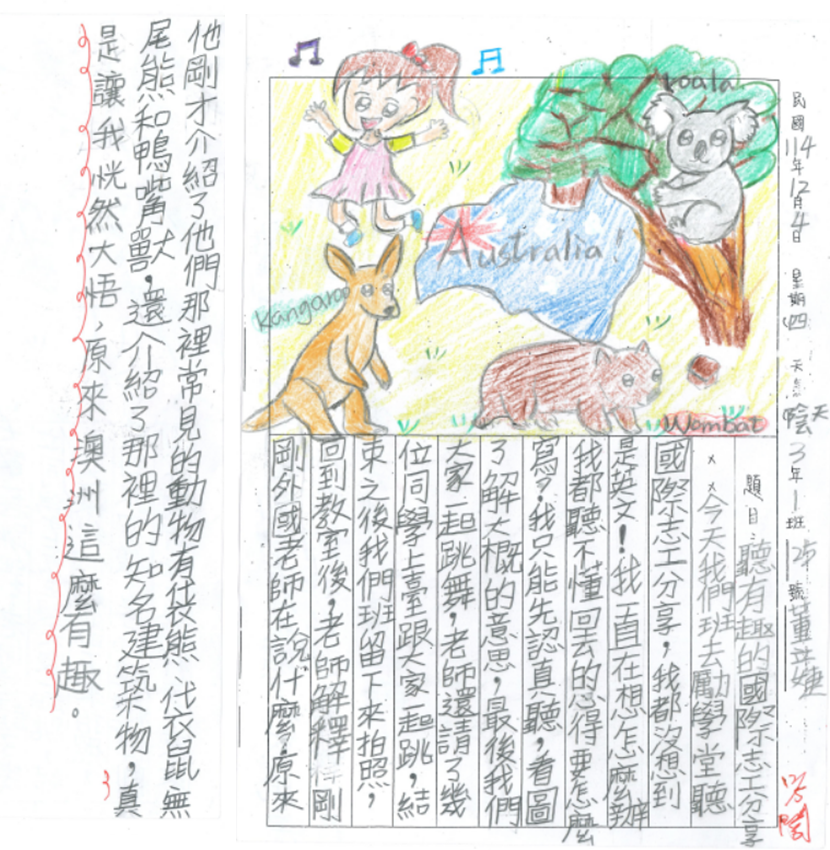 民國114年12月4日 星期四 天氣陰天 3年1班 25號
題目:聽有趣的國際志工分享
××今天我們班去勵學堂聽
國際志工分享,我都沒想到
是英文!我一直在想怎麼辦
我都聽不懂回去的心得要怎麼
寫,我只能先認真聽,看圖
了解大概的意思,最後我們
大家一起跳舞,老師還請了幾
位同學上臺跟大家一起跳,結
束之後我們班留下來拍照,
回到教室後,老師解釋剛
剛外國老師在說什麼,原來
他剛才介紹了他們那裡常見的動物有袋熊、袋鼠無
尾熊和鴨嘴獸,還介紹了那裡的知名建築物,真
是讓我恍然大悟,原來澳洲這麼有趣。
koala
Australia!
Kangaroo
Wombat
閱